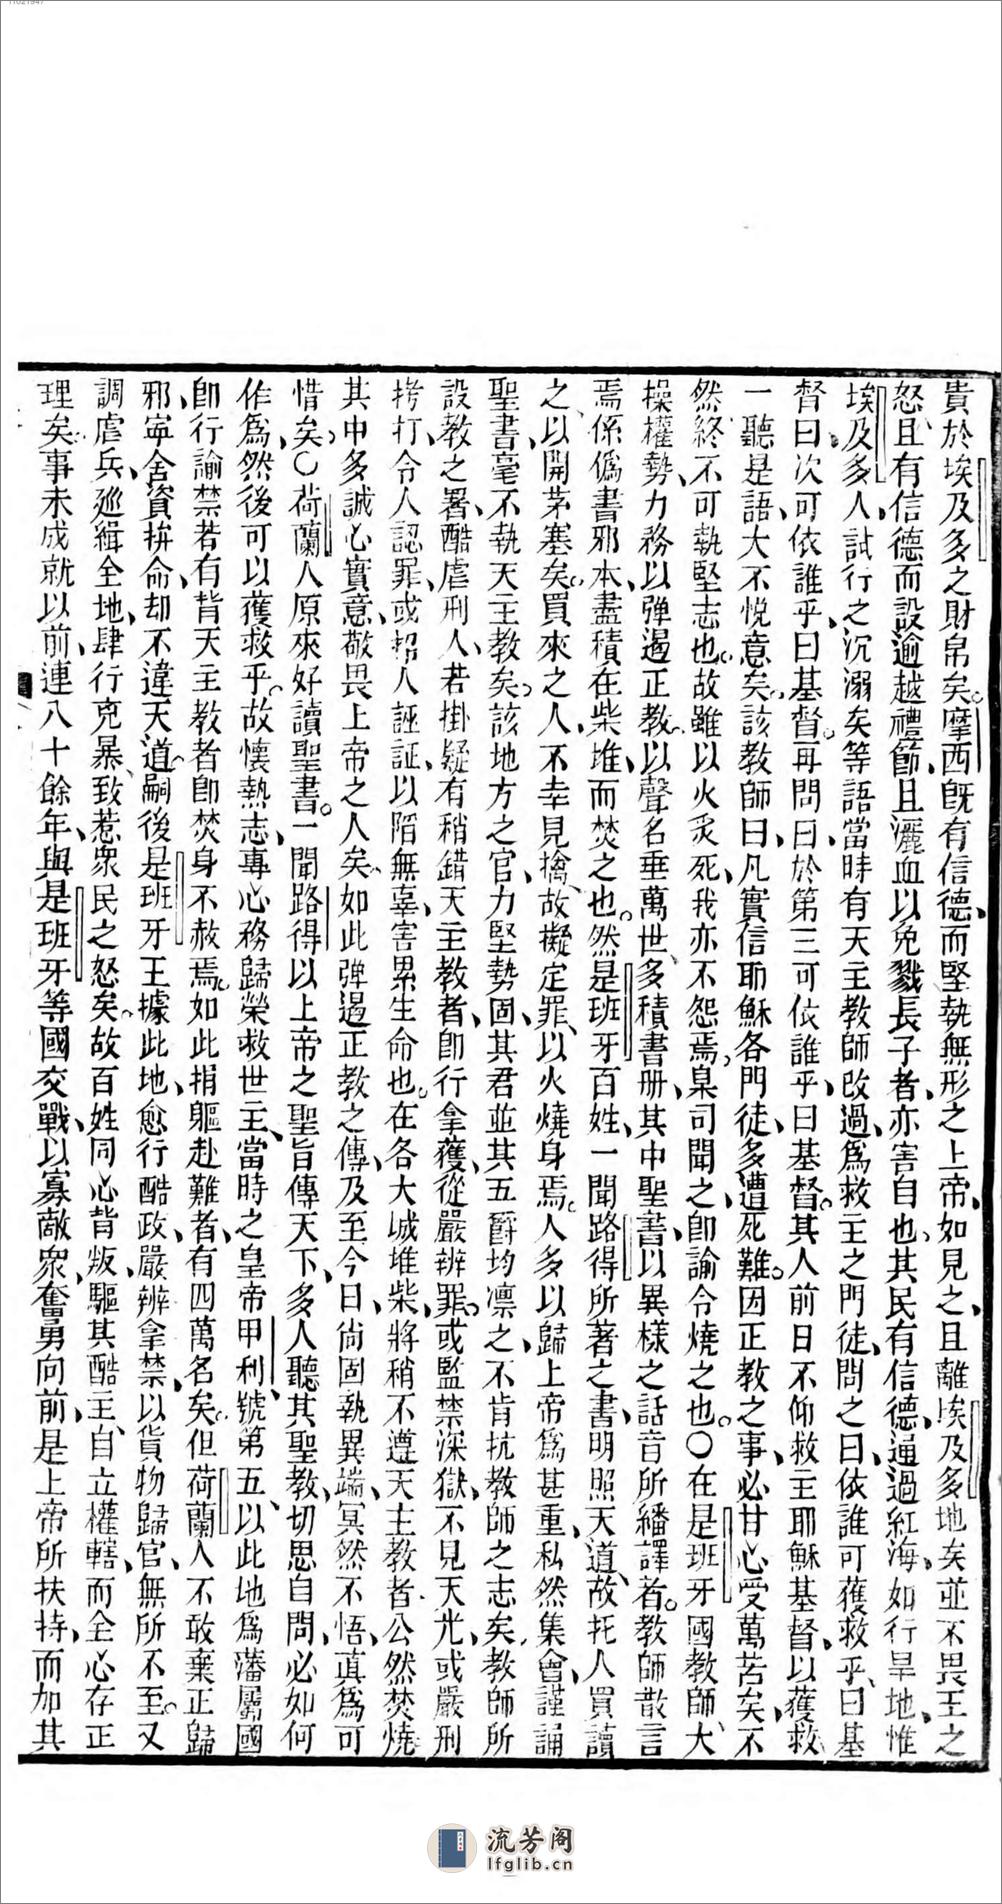 11021947
貴於埃及多之財帛矣。摩西既有信德、而堅執無形之上帝、如見之、且離埃及多地矣、並不畏王之
怒、且有信德而設逾越禮節、且灑血以免戮長子者、亦害自也。其民有信德、通過紅海、如行旱地、惟
埃及多人、試行之沉溺矣等語、當時有天主教師改過、爲救主之門徒、問之曰、依誰可獲救乎、曰基
督、曰、次可依誰乎、曰基督。再問曰、於第三可依誰乎、曰基督。其人前日不仰救主耶穌基督、以獲救
一聽是語、大不悅意矣。該教師曰、凡實信耶穌各門徒、多遭死難。因正教之事、必甘心受萬苦矣、不
然、終不可執堅志也。故雖以火炙死、我亦不怨焉。臬司聞之、卽諭令燒之也。〇在是班牙國教師、大
操權勢、力務以彈遏正教。以聲名垂萬世、多積書册、其中聖書、以異樣之話音所繙譯者。教師散言
焉、係僞書邪本、盡積在柴堆而焚之也。然是班牙百姓、一聞路得所著之書、明照天道、故托人買讀
之、以開茅塞矣。買來之人、不幸見擒、故擬定罪、以火燒身焉。人多以歸上帝爲甚重、私然集會、謹誦
聖書、毫不執天主教矣。該地方之官、力堅勢固、其君並其五爵均凛之、不肯抗教師之志矣、教師所
設教之署、酷虐刑人、若掛疑有稍錯天主教者、卽行拿獲、從嚴辨罪。或監禁深獄、不見天光、或嚴刑
拷打、令人認罪、或招人誣証、以陷無辜、害累生命也。在各大城堆柴、將稍不遵天主教者、公然焚燒
其中多誠心實意、敬畏上帝之人矣。如此彈遏正教之傳、及至今日、尙固執異端、冥然不悟、眞爲可
惜矣。〇荷蘭人原來好讀聖書。一聞路得以上帝之聖旨傳天下、多人聽其聖教、切思自問、必如何
作爲、然後可以獲救乎。故懷熱志、專心務歸榮救世主、當時之皇帝甲利號第五、以此地爲藩屬國
卽行諭禁、若有背天主教者、卽焚身不赦焉。如此捐軀赴難者、有四萬名矣。但荷蘭人不敢棄正歸
邪、寧舍資拚命、却不違天道、嗣後是班牙王據此地、愈行酷政、嚴辨拿禁、以貨物歸官、無所不至。又
調虐兵、巡緝全地、肆行克暴、致惹衆民之怒矣。故百姓同心背叛、驅其酷主、自立權轄、而全心存正
理矣。事未成就以前、連八十餘年、與是班牙等國交戰、以寡敵衆、奮勇向前、是上帝所扶持、而加其
流芳阁
lfglib.cn